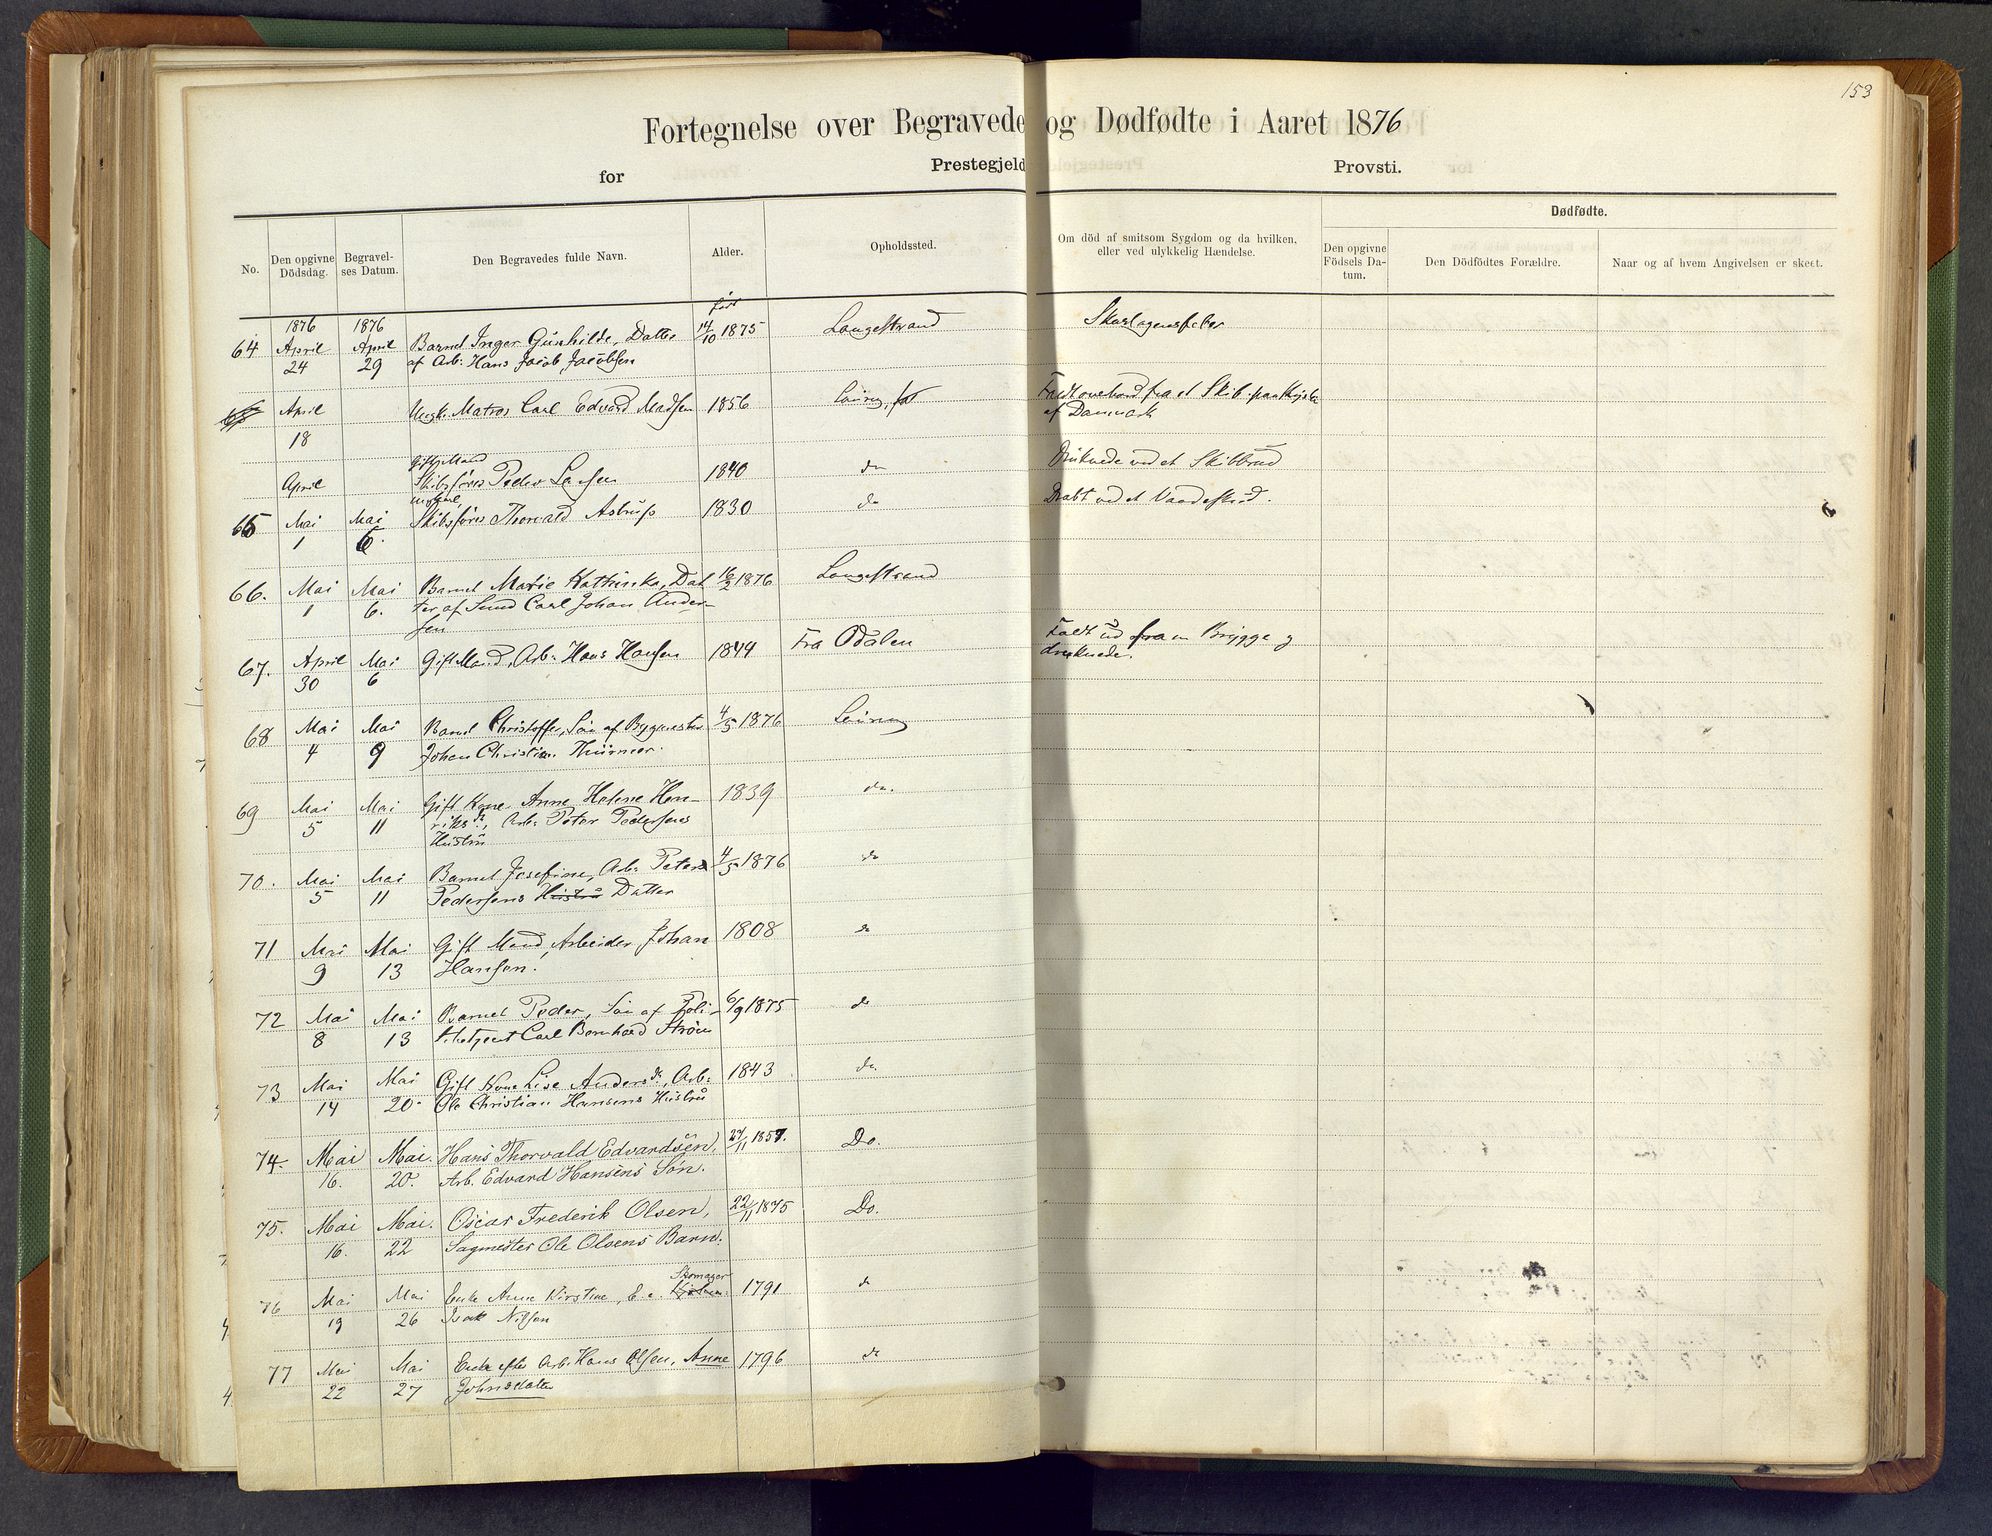 153
Fortegnelse over Begravede og Dødfødte i Aaret 1876
for Prestegjeld Provsti.
No. Den opgivne Dödsdag. Begravelses Datum. Den Begravedes fulde Navn. Alder. Opholdssted. Om död af smitsom Sygdom og da hvilken, eller ved ulykkelig Hændelse. Dødfødte. Den opgivne Födsels Datum. Den Dödfödtes Forældre. Naar og af hvem Angivelsen er skeet.
1876 1876 født
64 April April Barnet Inger Gunhilde, Datter 14/10 1875 Langestrand Skarlagensfeber
24 29 af Arb: Hans Jacob Jacobsen
April Ungk. Matros Carl Edvard Madsen 1856 Laurvig Faldt overbord fra et Skib paa Kysten
18 af Danmark
Gift Mand
April Skibsfører Peder Larsen 1840 do Druknede ved et Skibbrud
Ungkarl,
65 Mai Mai Skibsfører Thorvald Astrup 1830 do Dræbt ved et Vaadeskud.
1 6.
66. Mai Mai Barnet Marie Kathinka, Dat 16/2 1876 Langestrand
1 6. ter af Smed Carl Johan Ander-
sen
67. April Mai Gift Mand, Arb: Hans Hansen 1844 Fra Odalen Faldt ud fra en Brygge og
30 6 druknede.
68 Mai Mai Barnet Christoffer, Søn af Bygmester 4/5 1876 Laurvig
4 9 Johan Christian Thürmer.
69 Mai Mai Gift Kone Anne Helene Hen- 1839 do.
5 11 riksdr., Arb: Peter Pedersens
Hustru
70. Mai Mai Barnet Josefine, Arb: Peter 4/5 1876 do
5 11 Pedersens Hustru Datter
71 Mai Mai Gift Mand, Arbeider Johan 1808 do
9 13 Hansen.
72 Mai Mai Barnet Peder, Søn af Poli- 6/9 1875 do
8 13 tibetjent Carl Bernhard Strøm
73 Mai Mai Gift Kone Lise Andersdr., Arb: 1843 do
14 20. Ole Christian Hansens Hustru
74. Mai Mai. Hans Thorvald Edvardsen, 27/11 1857. Do.
16. 20. Arb. Edvard Hansens Søn.
75. Mai Mai. Oscar Frederik Olsen, 22/11 1875 Do.
16. 22 Sagmester Ole Olsens Barn.
Skomager
76 Mai Mai Enke Anne Kirstine, E. e. 1791 do
19 26 Isak Nilsen
77 Mai Mai Enke efter Arb: Hans Olsen, Anne 1796 do
22 27 Johnsdatter